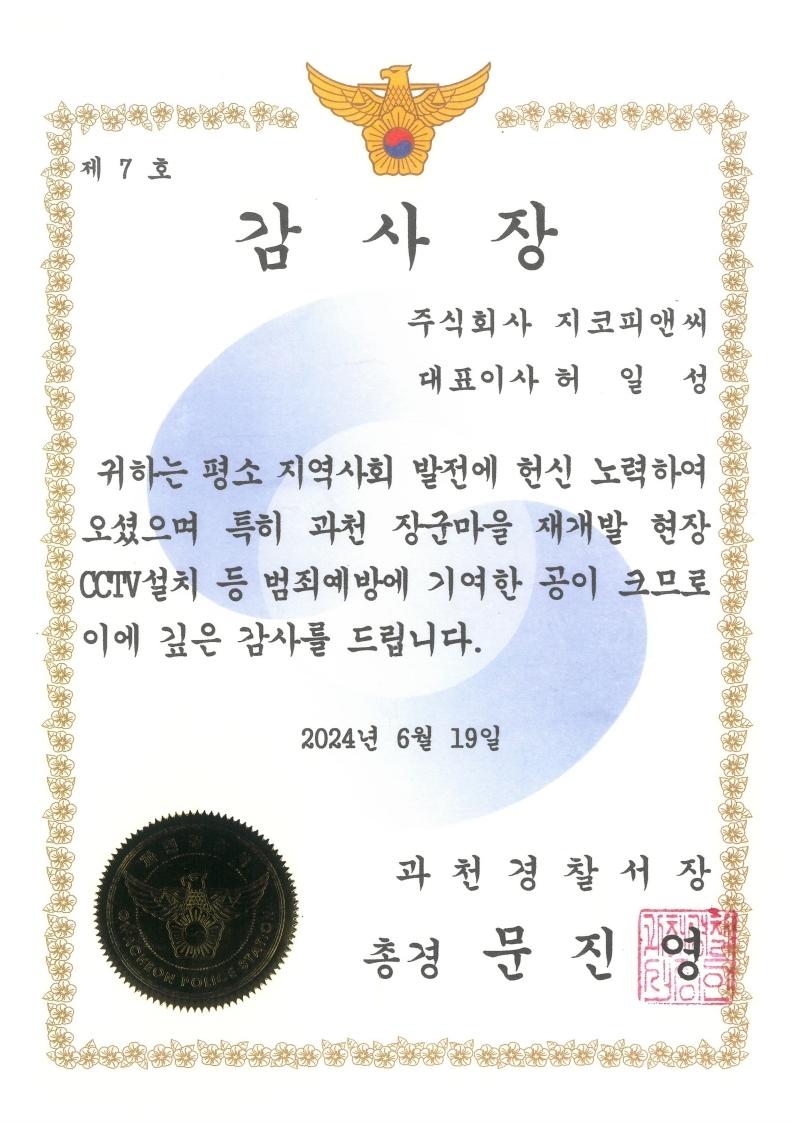 제 7 호
감 사 장
주식회사 지코피앤씨
대표이사 허 일 성
귀하는 평소 지역사회 발전에 헌신 노력하여
오셨으며 특히 과천 장군마을 재개발 현장
CCTV설치 등 범죄예방에 기여한 공이 크므로
이에 깊은 감사를 드립니다.
2024년 6월 19일
과 천 경 찰 서 장
총경 문 진 영
GWACHEON POLICE STATION